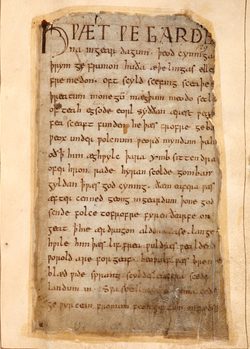 HǷÆT ǷE GARDE
na ingear dagum. þeod cyninga
þrym ge frunon huða æþelingas elle
fre medon. oft scyld scefing sceaþe
þreatum monegū mægþum meodo setla
of teah egsode eorl syððan ærest ƿear
fea sceaft funden he þæs frofre geba
ƿeox under ƿolcnum ƿeorð myndum þah
oð ꝥ him æghƿylc þara ymb sittendra
ofer hron rade hyran scolde gomban
gyldan ꝥ ƿæs god cyning. ðæm eafera ƿæs
æfter cenned geong ingeardum þone god
sende folce tofrofre fyren ðearfe on
geat ꝥ hie ær drugon aldor ase. lange
hƿile him þæs lif frea ƿuldres ƿealdend
ƿorold are for geaf. beoƿulf ƿæs breme
blæd ƿide sprang scyldes eafera scede
landum in. gode
ge ƿyrcean fromum feoh giftum